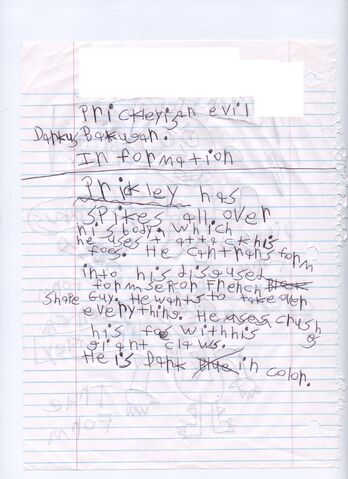 Prickley is an evil
Darkus Bakugan.
In formation
Prickley has
spikes all over
his body. Which
he uses t attack his
foes. He can trans form
into his disgused
form Senor French
Shape Guy. He wants to take over
everything. He uses crushes
his foes with his
giant claws.
He is Dark Blue in color.